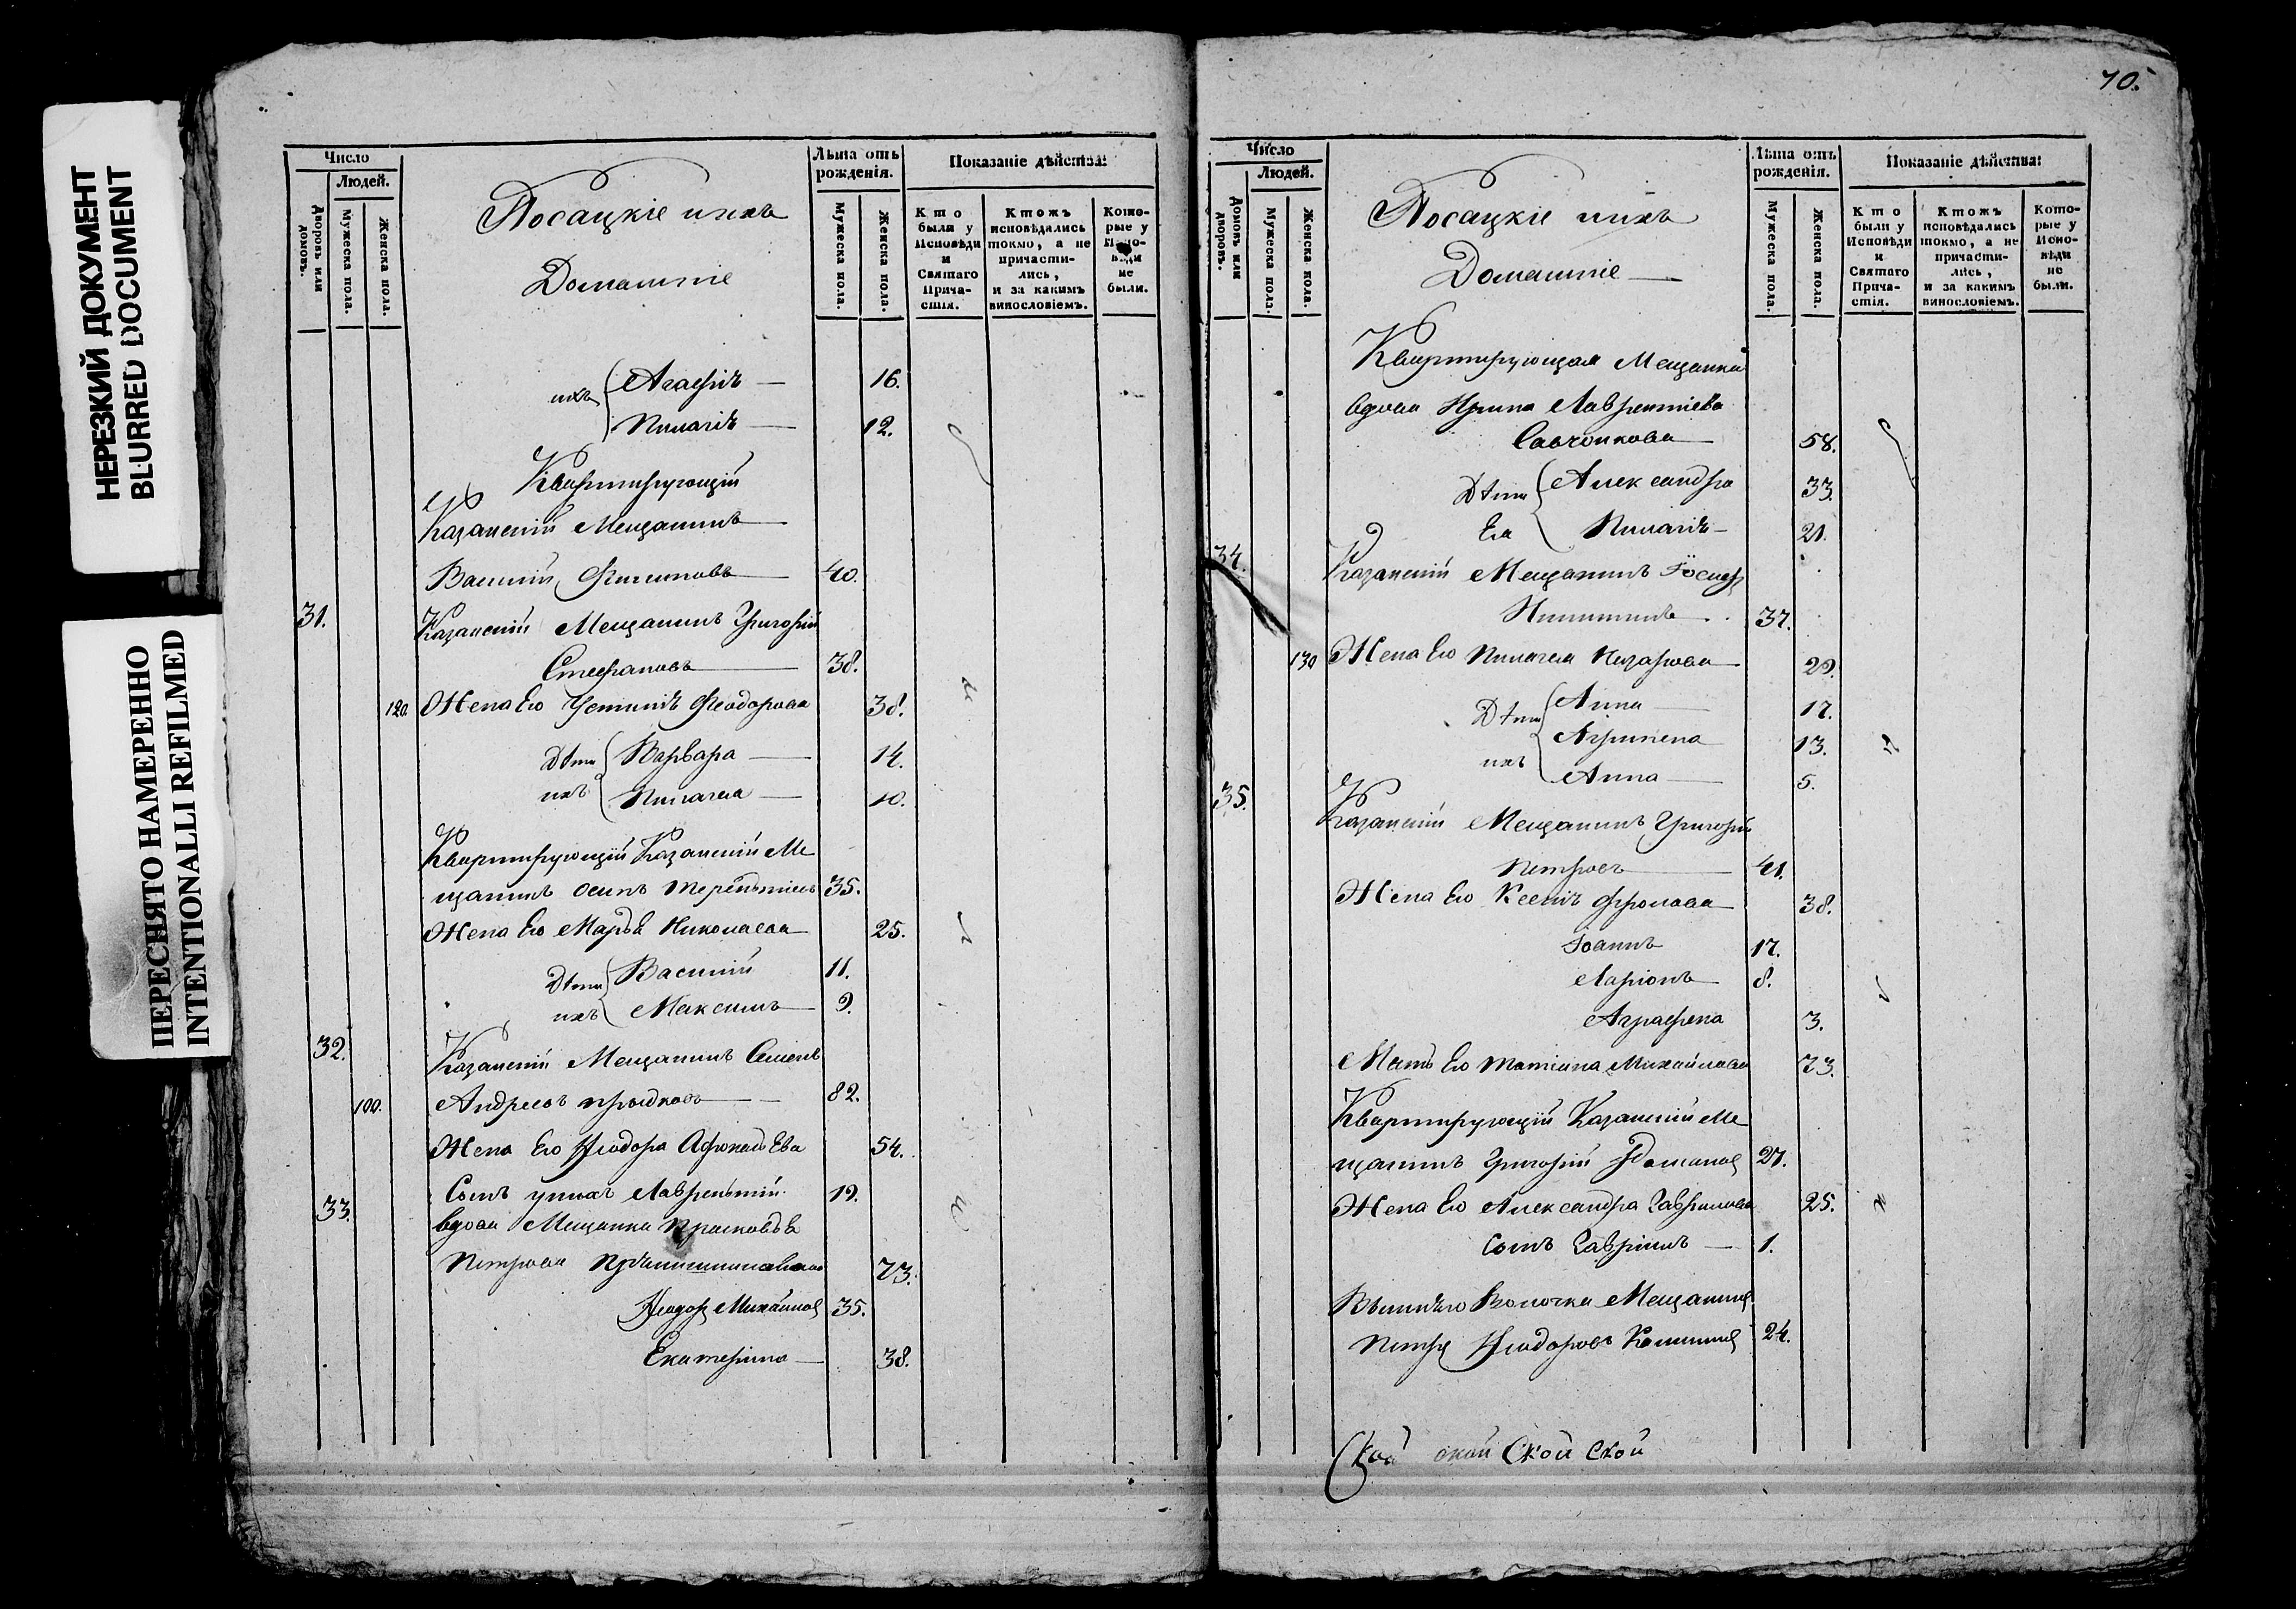 НЕРЕЗКИЙ ДОКУМЕНТ
BLURRED DOCUMENT
ПЕРЕСНЯТО НАМЕРЕННО
INTENTIONALLI REFILMED
Число
Людей.
Дворовъ или домовъ.
Мужеска пола.
Женска пола.
Посацкіе ихъ
Домашніе
Лѣта отъ рожденія.
Мужеска пола.
Женска пола.
Показаніе дѣйства:
Кто были у Исповѣди и Святаго Прича-стія.
Ктожъ исповѣдались токмо, а не причасти-лись, и за какимъ винословіемъ.
Кото-рые у Испо-вѣди не были.
ихъ Агафія 16.
Пилагія 12.
Квартирующій
Казанскій Мещанинъ
Василій Филиповъ 40.
31. Казанскій Мещанинъ Григорій
Стефановъ 38.
120. Жена Его Устинія Феодорова 38.
Дѣти Варвара 14.
ихъ Пилагея 10.
Квартирующій Казанскій Ме
щанинъ Осипъ Терентьевъ 35.
Жена Его Марья Николаева 25.
Дѣти Василій 11.
ихъ Максимъ 9.
32. Казанскій Мещанинъ Семенъ
100. Андреевъ 82.
Жена Его Феодора 54.
Сынъ у нихъ Лаврентій 19.
33. вдова Мещанка Прасковья
Петрова 73.
Феодоръ Михайловъ 35.
Екатерина 38.
70.
Число
Людей.
Домовъ или дворовъ.
Мужеска пола.
Женска пола.
Посацкіе ихъ
Домашніе
Лѣта отъ рожденія.
Мужеска пола.
Женска пола.
Показаніе дѣйства:
Кто были у Исповѣди и Святаго Прича-стія.
Ктожъ исповѣдались токмо, а не причасти-лись, и за какимъ винословіемъ.
Кото-рые у Испо-вѣди не были.
Квартирующая Мещанка
вдова Ирина Лаврентіева
58.
Дѣти Александра 33.
Ея Пилагія 21.
34. Казанскій Мещанинъ Іосифъ
Никитинъ 37.
130 Жена Его Пилагея Назарова 29.
Дѣти Анна 17.
Агрипена 13.
ихъ Анна 5.
35. Казанскій Мещанинъ Григорій
Петровъ 41.
Жена Его Ксенія Фролова 38.
Іоаннъ 17.
Ларіонъ 8.
Аграфена 3.
Мать Его Татіана Михайлова 73.
Квартирующій Казанскій Ме
щанинъ Григорій Романовъ 27.
Жена Его Александра Гаврилова 25.
Сынъ Гавріилъ 1.
Вышняго Волочка Мещанинъ
Петръ Феодоровъ 24.
Ской ской Ской Ской